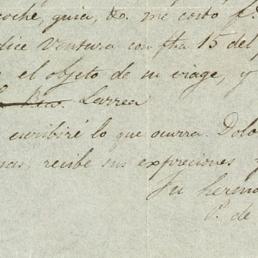 coche, guia, &a. me costo p.
dice Ventura con fha 15 del
el objeto de su viage, y
Larrea
escribiré lo que ocurra. Dolo
recibe sus expreciones
Tu herma
P. de